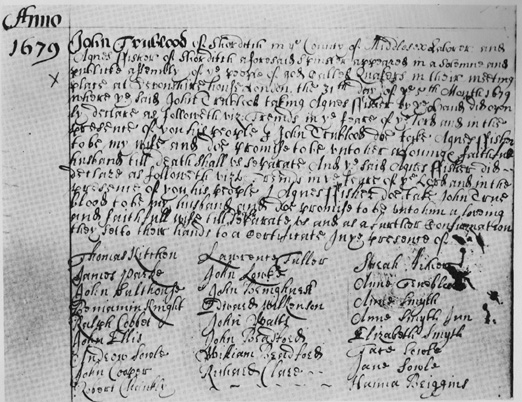 Anno
1679
John Trublood of Shorditch in ye County of Middlesex Laborer and
Agnes ffisher of Shorditch aforesaid Spinster appeared in a Solemne and
publique assembly of ye people of god Called Quakers in their meeting
place at Devonshire house London, the 31th day of ye 5th Month 1679
where ye said John Trublood taking Agnes ffisher by ye hand did open
ly declare as followeth viz. ffriends in ye feare of ye Lord and in the
presence of you his people I John Trublood doe take Agnes ffisher
to be my wife and doe promise to be unto her a Loving & faithfull
husband till death shall us separate And ye said Agnes ffisher did
declare as followeth viz. ffriends in ye feare of ye Lord and in the
presence of you his people I Agnes ffisher doe take John True
blood to be my husband and doe promise to be unto him a loving
and faithfull wife till separate us and as a further Confirmation
they sett to their hands to a Certificate In ye presence of
Thomas Kitchen Lawrence Fullor Sarah
James John Lowke Anne Trueblood
John Bulthouse John Anne Smyth
Beniamin Knight Edward Wilkenson Anne Smyth Jun
Ralph Cooper John Watts Elizabeth Smyth
John Ellis John Bradford
Andrew Sowle William Bradford Jane Sowle
John Cooper Richard Clare Hanna Briggins
Robert